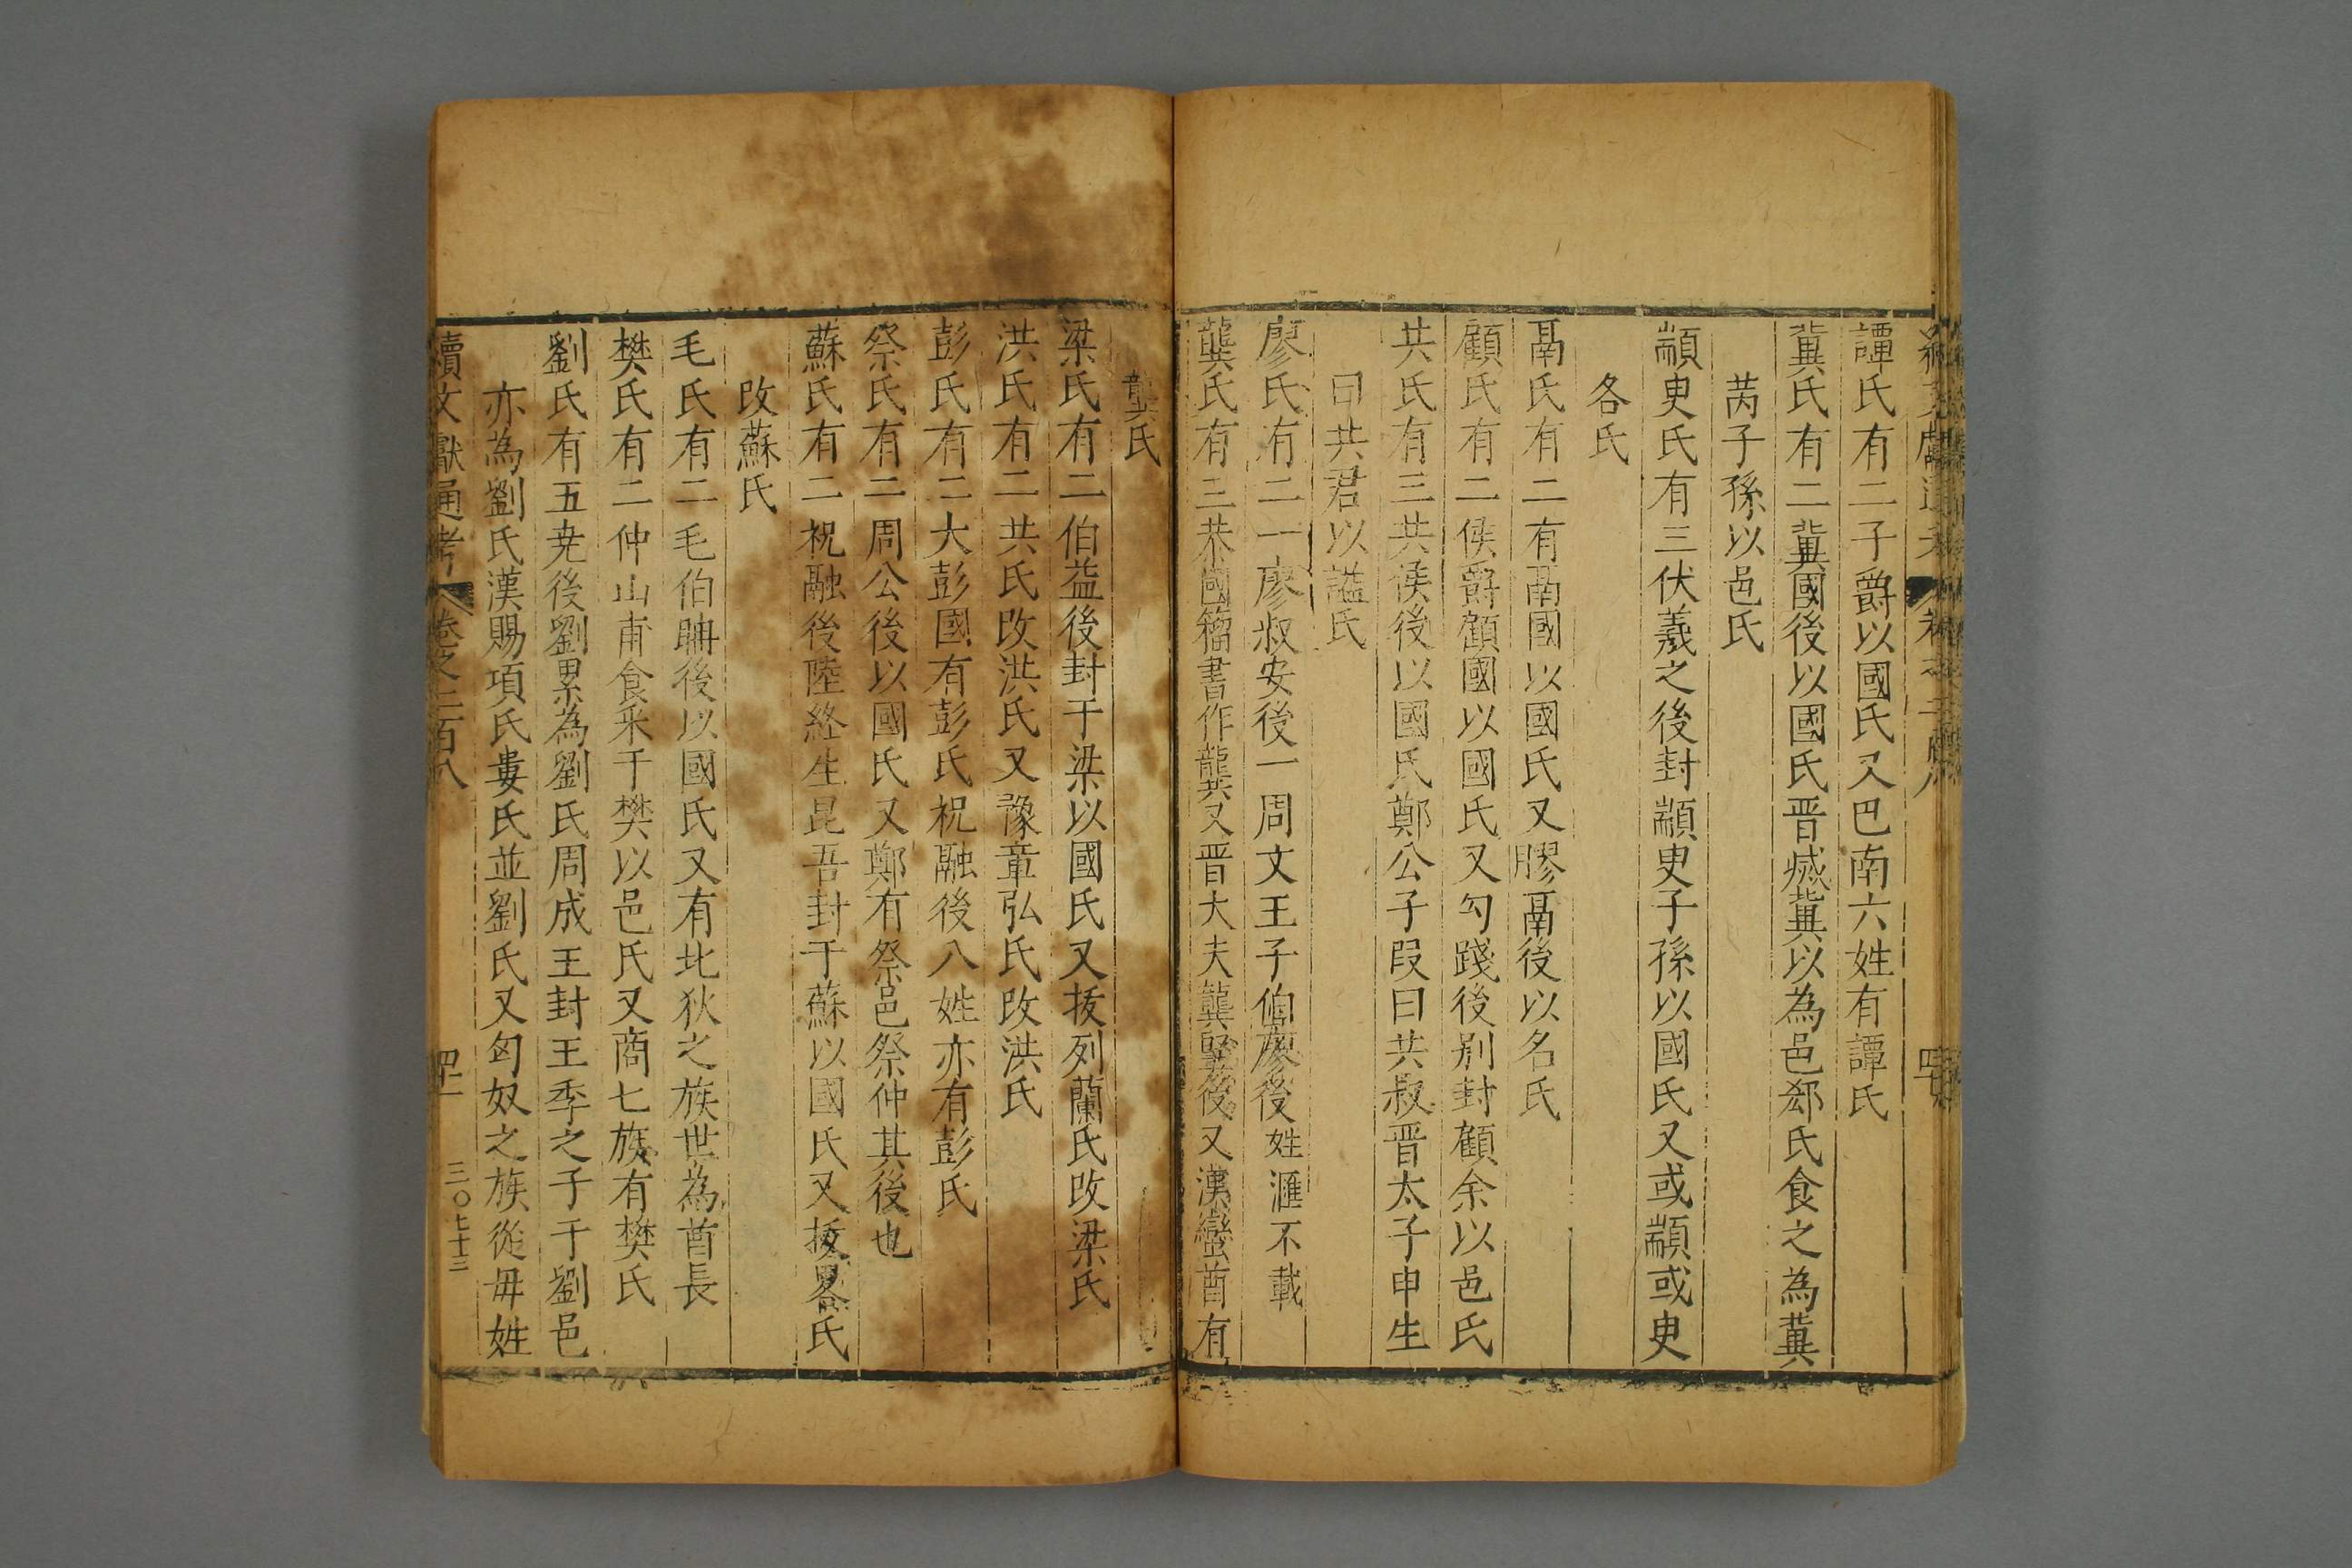 譚氏有二子爵以國氏又巴南六姓有譚氏
兾氏有二兾國後以國氏晋滅兾以為邑郄氏食之為兾
芮子孫以邑氏
顓㬰氏有三伏羲之後封顓㬰子孫以國氏又或顓或㬰
各氏
鬲氏有二有鬲國以國氏又膠鬲後以名氏
顧氏有二侯爵顧國以國氏又勾踐後别封顧余以邑氏
共氏有三共侯後以國氏鄭公子段曰共叔晋太子申生
曰共君以謚氏
廖氏有二一廖叔安後一周文王子伯廖後姓滙不載
龔氏有三恭國籀書作龔又晋大夫龔堅後又漢蠻酋有
龔氏
梁氏有二伯益後封于梁以國氏又拔列蘭氏改梁氏
洪氏有二共氏改洪氏又豫章弘氏改洪氏
彭氏有二大彭國有彭氏祝融後八姓亦有彭氏
祭氏有二周公後以國氏又鄭有祭邑祭仲其後也
蘇氏有二祝融後陸終生昆吾封于蘇以國氏又拔畧氏
改蘇氏
毛氏有二毛伯聃後以國氏又有北狄之族世為酋長
樊氏有二仲山甫食采于樊以邑氏又商七族有樊氏
劉氏有五尭後劉累為劉氏周成王封王季之子于劉邑
亦為劉氏漢賜項氏婁氏並劉氏又匈奴之族從毋姓
續文獻通考 卷之二百八
三〇七十三